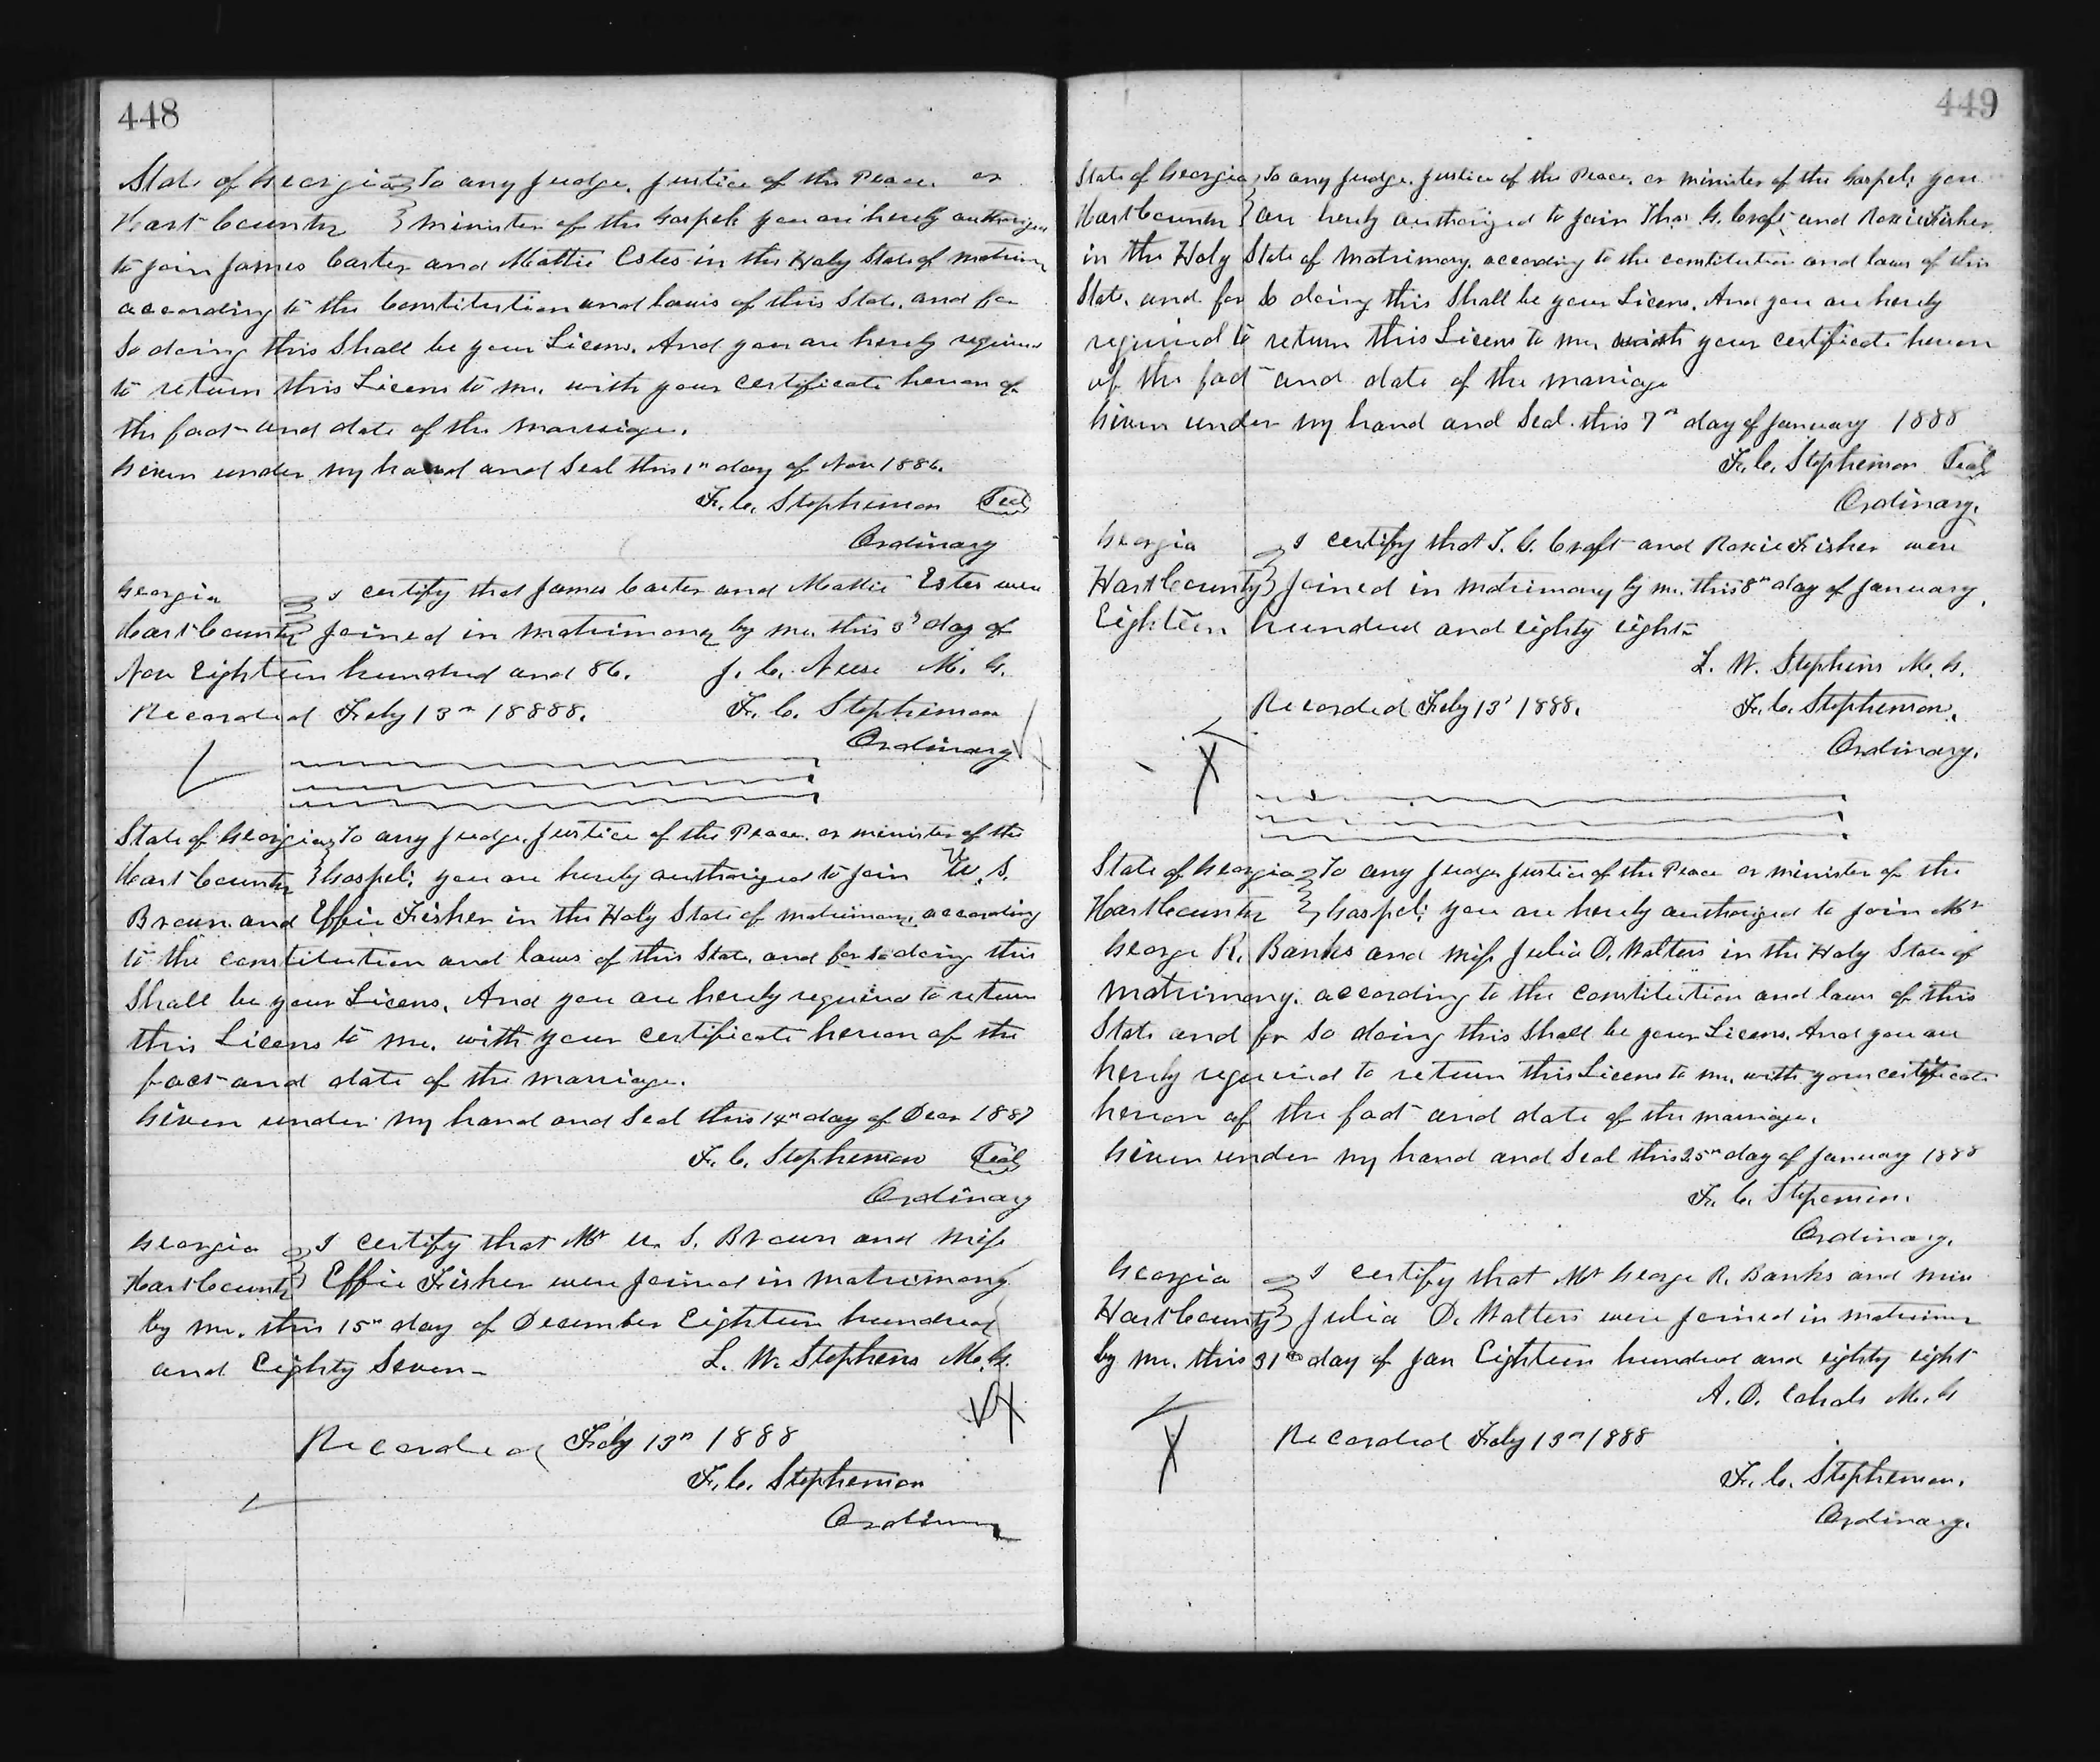 448
State of Georgia To any Judge, Justice of the Peace. or
Hart County minister of the Gospel: you are hereby authorized
to join James Carter and Mattie Estes in the Holy State of matrimony
according to the Constitution and laws of this State, and for
So doing this Shall be your Licens. And you are hereby required
to return this Licens to me. with your certificate hereon of
the fact and date of the marriage.
Given under my hand and Seal this 1st day of Nov 1886.
F. C. Stephenson Seal
Ordinary
Georgia I certify that James Carter and Mattie Estes were
Hart County Joined in matrimony by me. this 3d day of
Nov Eighteen hundred and 86. J. C. Neese M. G.
Recorded Feby 13th 18888. F. C. Stephenson
Ordinary
State of Georgia To any Judge, Justice of the Peace. or minister of the
Hart County Gospel; you are hereby authorized to join W. S.
Brown and Effie Fisher in the Holy State of matrimony, according
to the constitution and laws of this State, and for so doing this
Shall be your Licens. And you are hereby required to return
this Licens to me. with your certificate hereon of the
fact and date of the marriage.
Given under my hand and Seal this 14th day of Decr 1887
F. C. Stephenson Seal
Ordinary
Georgia I certify that Mr U. S. Brown and Miss
Hart County Effie Fisher were Joined in matrimony
by me. this 15th day of December Eighteen hundred
and Eighty Seven- L. W. Stephens M. G.
Recorded Feby 13th 1888
F. C. Stephenson
Ordinary
449
State of Georgia To any Judge. Justice of the Peace. or minister of the Gospel; you
Hart County are hereby authorized to join Thos G. Croft and Roxie Fisher
in the Holy State of matrimony. according to the constitution and laws of this
State. and for So doing this Shall be your Licens. And you are hereby
required to return this Licens to me with your certificate hereon
of the fact and date of the marriage
Given under my hand and Seal this 7th day of January 1888
F. C. Stephenson Seal
Ordinary.
Georgia I certify that T. G. Croft and Roxie Fisher were
Hart County Joined in matrimony by me. this 8th day of January,
Eighteen hundred and eighty eight
L. W. Stephens M. G.
Recorded Feby 13d 1888. F. C. Stephenson.
Ordinary.
State of Georgia To any Judge Justice of the Peace or minister of the
Hart County Gospel; you are hereby authorized to join Mr
George R. Banks and Miss Julia O. Walters in the Holy State of
matrimony. according to the constitution and laws of this
State and for So doing this Shall be your Licens. And you are
hereby required to return this Licens to me. with your certificate
hereon of the fact and date of the marriage.
Given under my hand and Seal this 25th day of January 1888
F. C. Stepenson.
Ordinary.
Georgia I certify that Mr George R. Banks and miss
Hart County Julia O. Walters were Joined in matrimony
by me. this 31st day of Jan Eighteen hundred and eighty eight
A. D. M. G
Recorded Feby 13th 1888
F. C. Stephenson.
Ordinary.